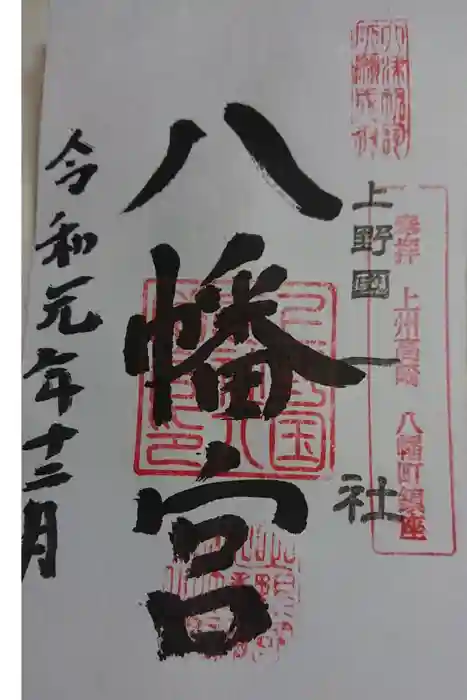 奉拝 上州高崎 八幡町鎮座
上野國一社
八幡宮
令和元年十二月